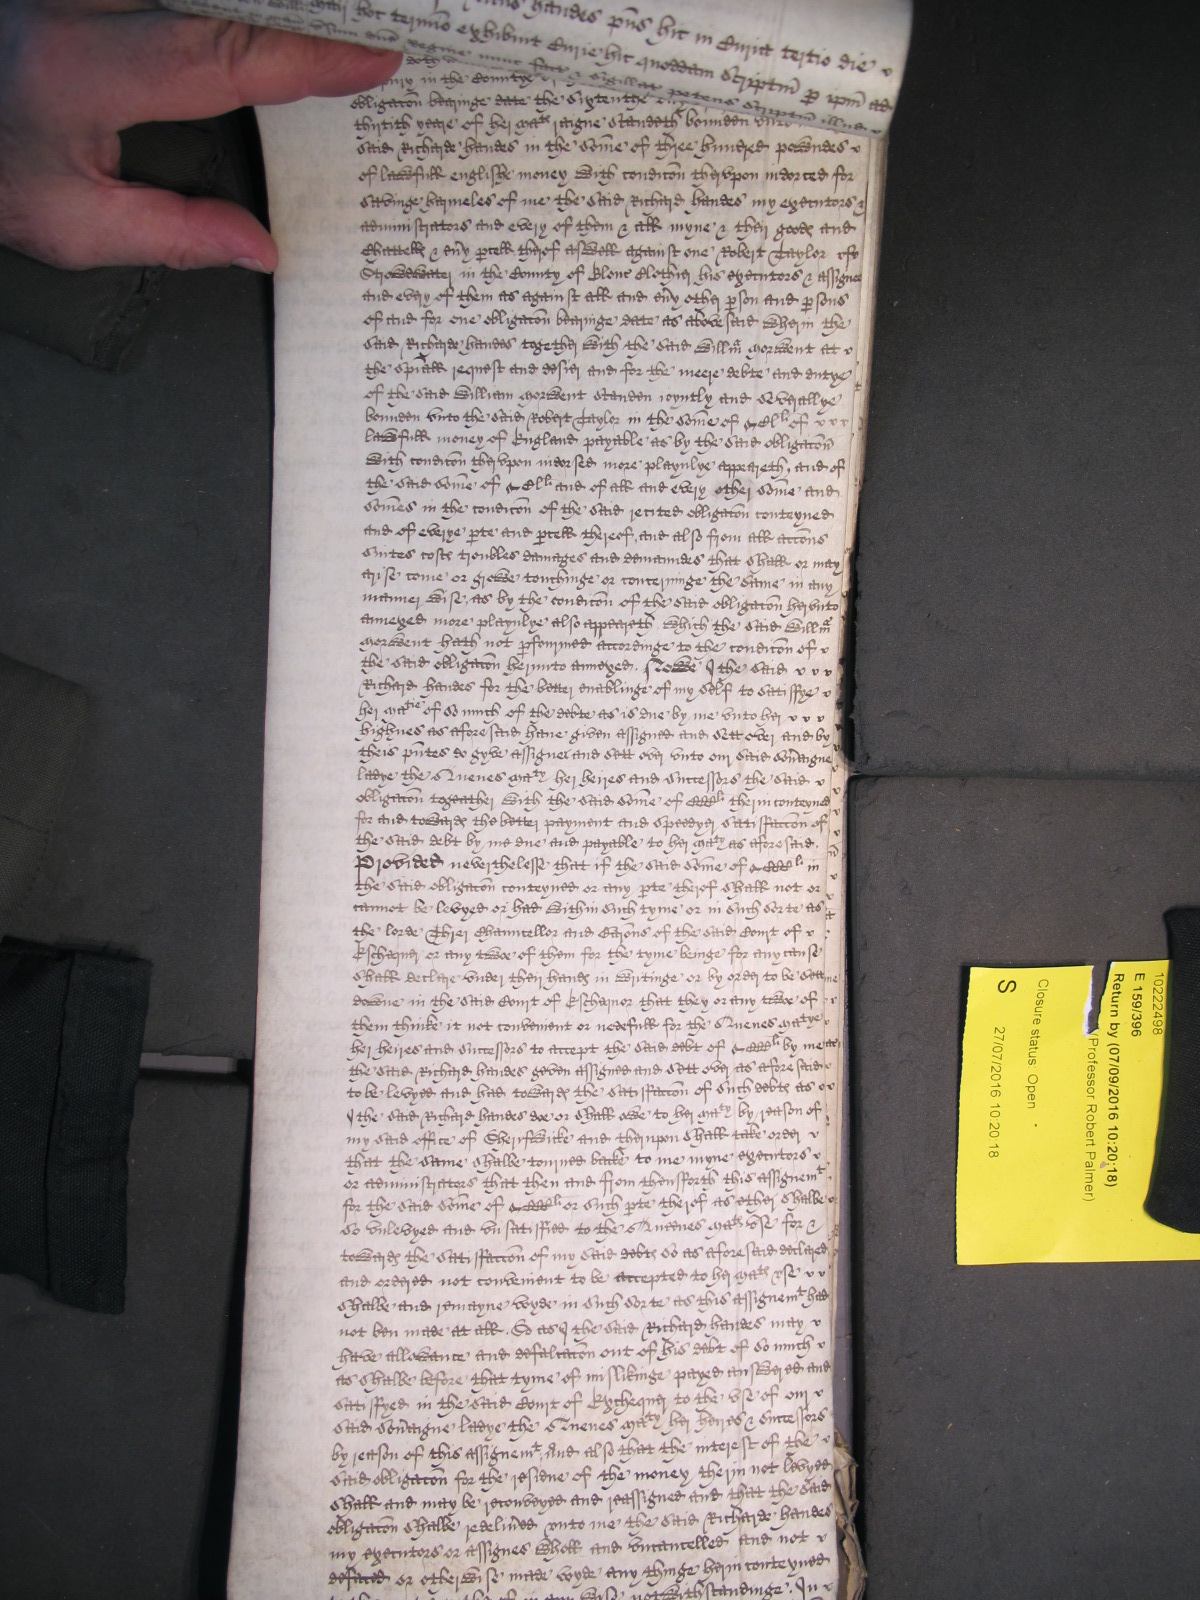 handes pñs hic in Curia tertio die
hoc termino exhibuit Curie hic quoddam Scriptm̃ p ipm̃
in the Countye
obligacoñ bearinge date the Sixtenthe
thirtith yeare of her maᵗˢ raigne standeth bounden vnto
said Richarde handes in the some of three hundred powndes
of lawfull englishe money with condicoñ thervpon indorced for
Savinge harmeles of me the said Richard handes my executors &
administrators and every of them & all myne & their goods and
Chattells & eñy pcell therof aswell against one Robert Taylor
in the County of Glouc Clothier his executors & assignes
and every of them as against all and eñy other pson and psons
of and for one obligacoñ bearinge date as above said wherin the
said Richarde handes together with the said Willm̃ Morwent at
the spiall request and desier and for the meere debte and dutye
of the said William Morwent standen ioyntly and severallye
bounden vnto the said Robert Taylor in the some of of
lawfull money of England payable as by the said obligacoñ
with condicoñ thervpon indorsed more playnlye appeareth, and of
the said some of and of all and every other some and
somes in the condicoñ of the said recited obligacoñ conteyned
and of everye pte and pcell thereof, and also from all accons
suites costs troubles damages and demaundes that shall or may
arise come or growe touchinge or concerninge the same in any
manner wise, as by the condicoñ of the said obligacoñ hervnto
annexed more playnlye also appeareth, which the said Willm̃
Morwent hath not pformed accordinge to the condicoñ of
the said obligacoñ hervnto annexed. Nowe I the said
Richard handes for the better enablinge of my self to satisfye
her maᵗⁱᵉ of so much of the debte as is due by me vnto her
highnes as aforesaid have given assigned and sett over and by
theis pñtes do gyve assigne and sett over vnto our said soṽaigne
ladye the Quenes maᵗʸ her heires and successors the said
obligacoñ togeather with the said some of therin conteyned
for and towards the better payment and speedyer satisfaccoñ of
the said debt by me due and payable to her maᵗʸ as aforesaid.
Provided neverthelesse that if the said some of in
the said obligacoñ conteyned or any pte therof shall not or
cannot be levyed or had within such tyme or in such sorte as
the lorde Threr Chauncellor and Barons of the said Court of
Excheqer or any twoe of them for the tyme beinge for any cause
shall declare vnder their hands in writinge or by order to be sett
downe in the said Court of Exchequer that they or any twoe of
them thinke it not convenient or nedefull for the Quenes maᵗʸᵉ
her heires and successors to accept the said debt of by me
the said Richard handes geven assigned and sett over as aforesaid
to be levyed and had towards the satisfaccoñ of such debts as
I the said Richard handes doe or shall owe to her maᵗʸ by reason of
my said office of Sherifwike and thervpon shall take order
that the same shalbe torned backe to me myne executors
or administrators that then and from thensforth this assignemᵗ
for the said some of or such pte therof as either shalbe
so vnlevyed and vnsatisfied to the Quenes maᵗˢ vse for &
towards the satisfaccoñ of my said debts so as aforesaid declared
and ordered not convenient to be accepted to her maᵗˢ vse
shalbe and remayne voyde in such sorte as this assignemᵗ had
not ben made at all. So as I the said Richard handes may
have allowance and defalcacoñ out of his debt of so much
as shalbe before that tyme of mislikinge payed answered and
satisfyed in the said Court of Exchequer to the vse of our
said soṽaigne ladye the Quenes maᵗʸ her heires & successors
by reason of this assignemᵗ, And also that the interest of the
said obligacoñ for the residue of the money therin not levyed
shall and may be reconveyed and reassigned and that the said
obligacoñ shalbe redelived vnto me the said Richarde handes
my executors or assignes whole and vncancelled and not
defaced or otherwise made voyde any thinge herin conteyned
in any wise notwithstandinge. In
10222498
E 159/396
Return by (07/09/2016 10:20:18)
(Professor Robert Palmer)
Closure status: Open
27/07/2016 10:20:18
S